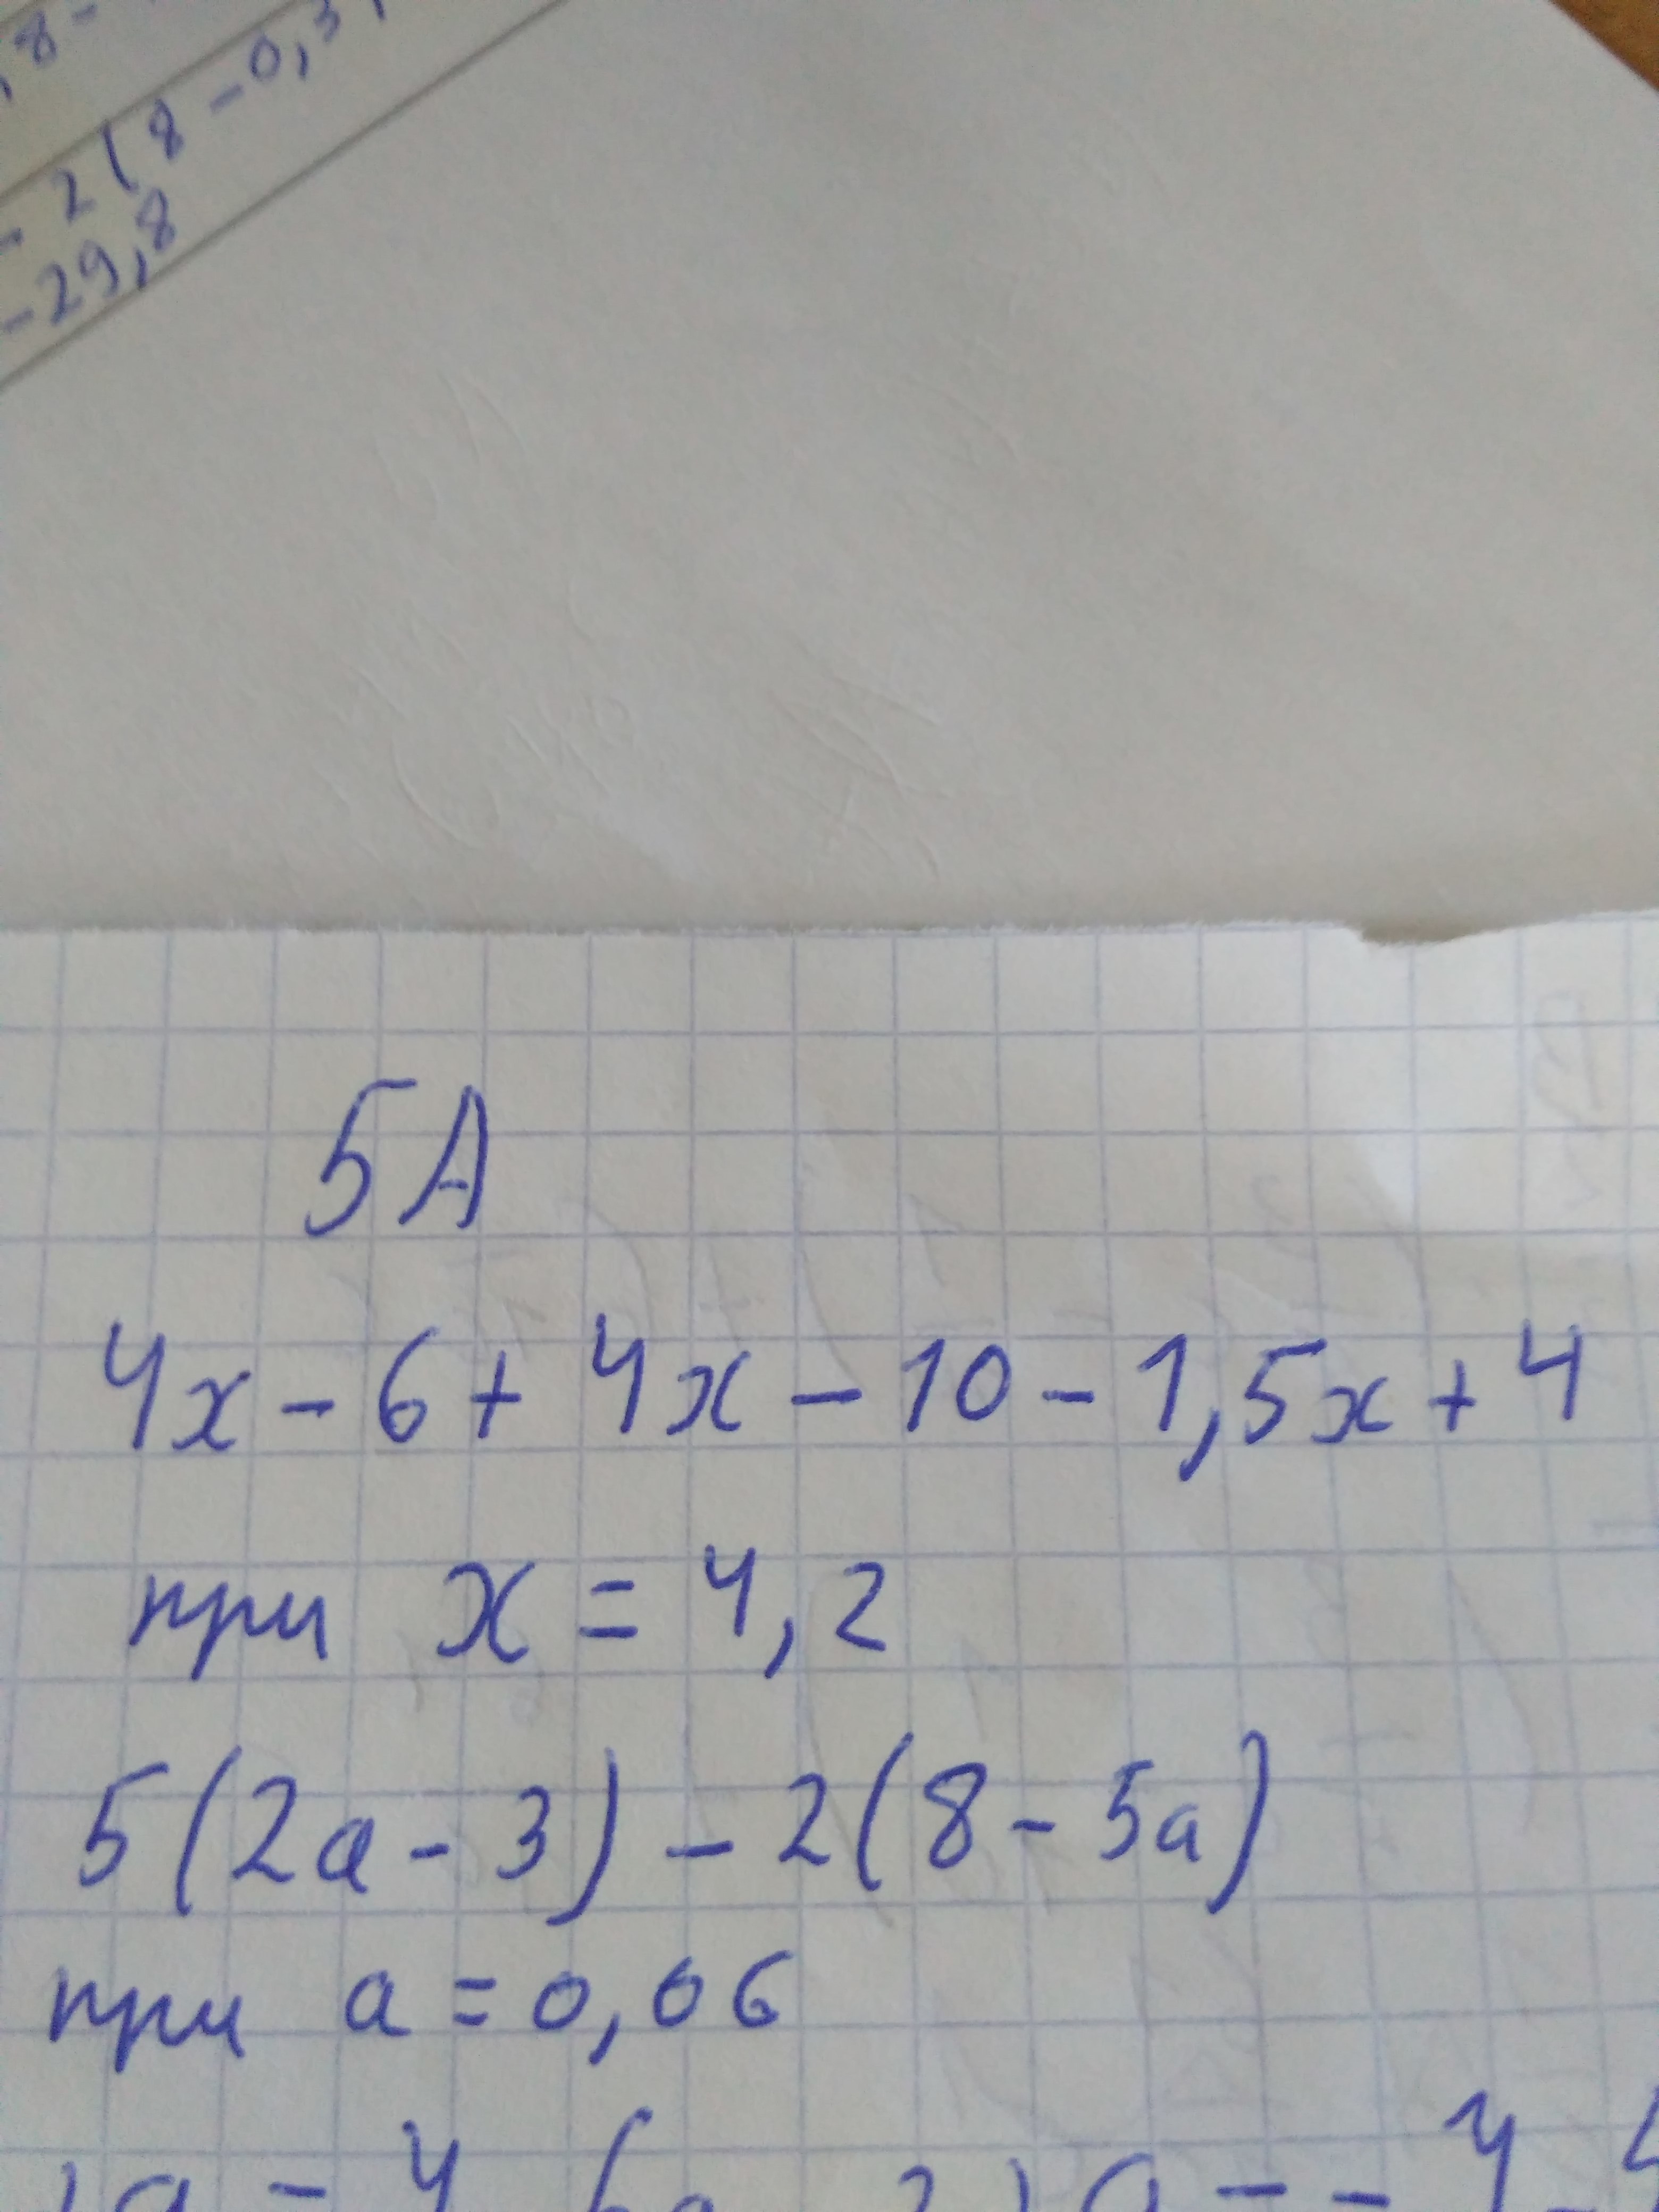 8-
2(8-0,3
-29,8
5A
4x-6+4x-10-1,5x+4
при x=4,2
5(2a-3)-2(8-5a)
при a=0,06